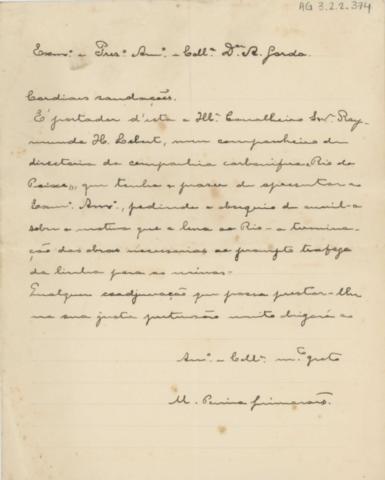 AG 3.2.2.374
Exmº. e Presº. Amº. e Collª. Dr. A. Gordo.
Cordiaes saudações.
É portador d'esta o Illº. Cavalheiro Snr. Ray-
mundo H. Lebert, meu companheiro de
directoria da companhia carbonifera, Rio do
Peixe, que tenho o prazer de apresentar ao
Exmº. Amº., pedindo o obsequio de auxilial-o
sobre o motivo que o leva ao Rio - a termina-
ção das obras necessarias ao prompto trafego
da linha para as minas.
Qualquer coadjuvação que possa prestar-lhe
na sua justa pretensão muito obrigará ao
Amº. e Collª. mtº. grato
M. Pereira Guimarães.